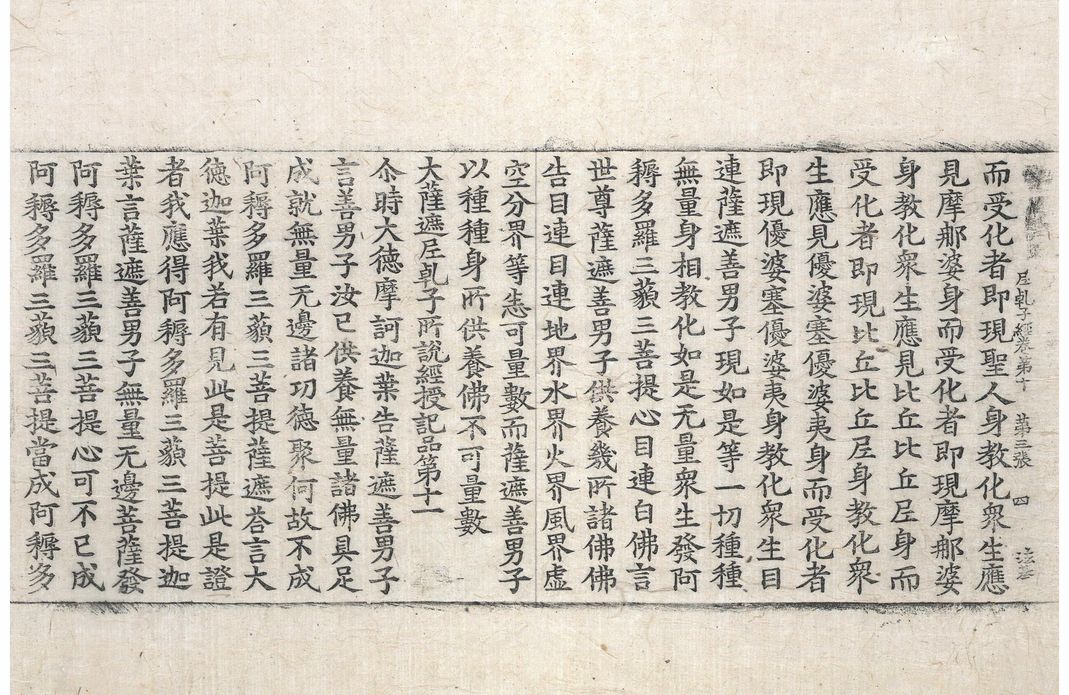 𡰱乹子經卷第十 第三張 四
而受化者即現聖人身教化衆生應
見摩郍婆身而受化者即現摩郍婆
身教化衆生應見比丘比丘𡰱身而
受化者即現比丘比丘𡰱身教化衆
生應見優婆塞優婆夷身而受化者
即現優婆塞優婆夷身教化衆生目
連薩遮善男子現如是等一切種種
無量身相教化如是无量衆生發阿
耨多羅三藐三菩提心目連白佛言
世尊薩遮善男子供養幾所諸佛佛
告目連目連地界水界火界風界虛
空分界等悉可量數而薩遮善男子
以種種身所供養佛不可量數
大薩遮𡰱乹子所說經授記品第十一
尒時大德摩訶迦葉告薩遮善男子
言善男子汝已供養無量諸佛具足
成就無量无邊諸功德聚何故不成
阿耨多羅三藐三菩提薩遮荅言大
徳迦葉我若有見此是菩提此是證
者我應得阿耨多羅三藐三菩提迦
葉言薩遮善男子無量无邊菩薩發
阿耨多羅三藐三菩提心可不已成
阿耨多羅三藐三菩提當成阿耨多